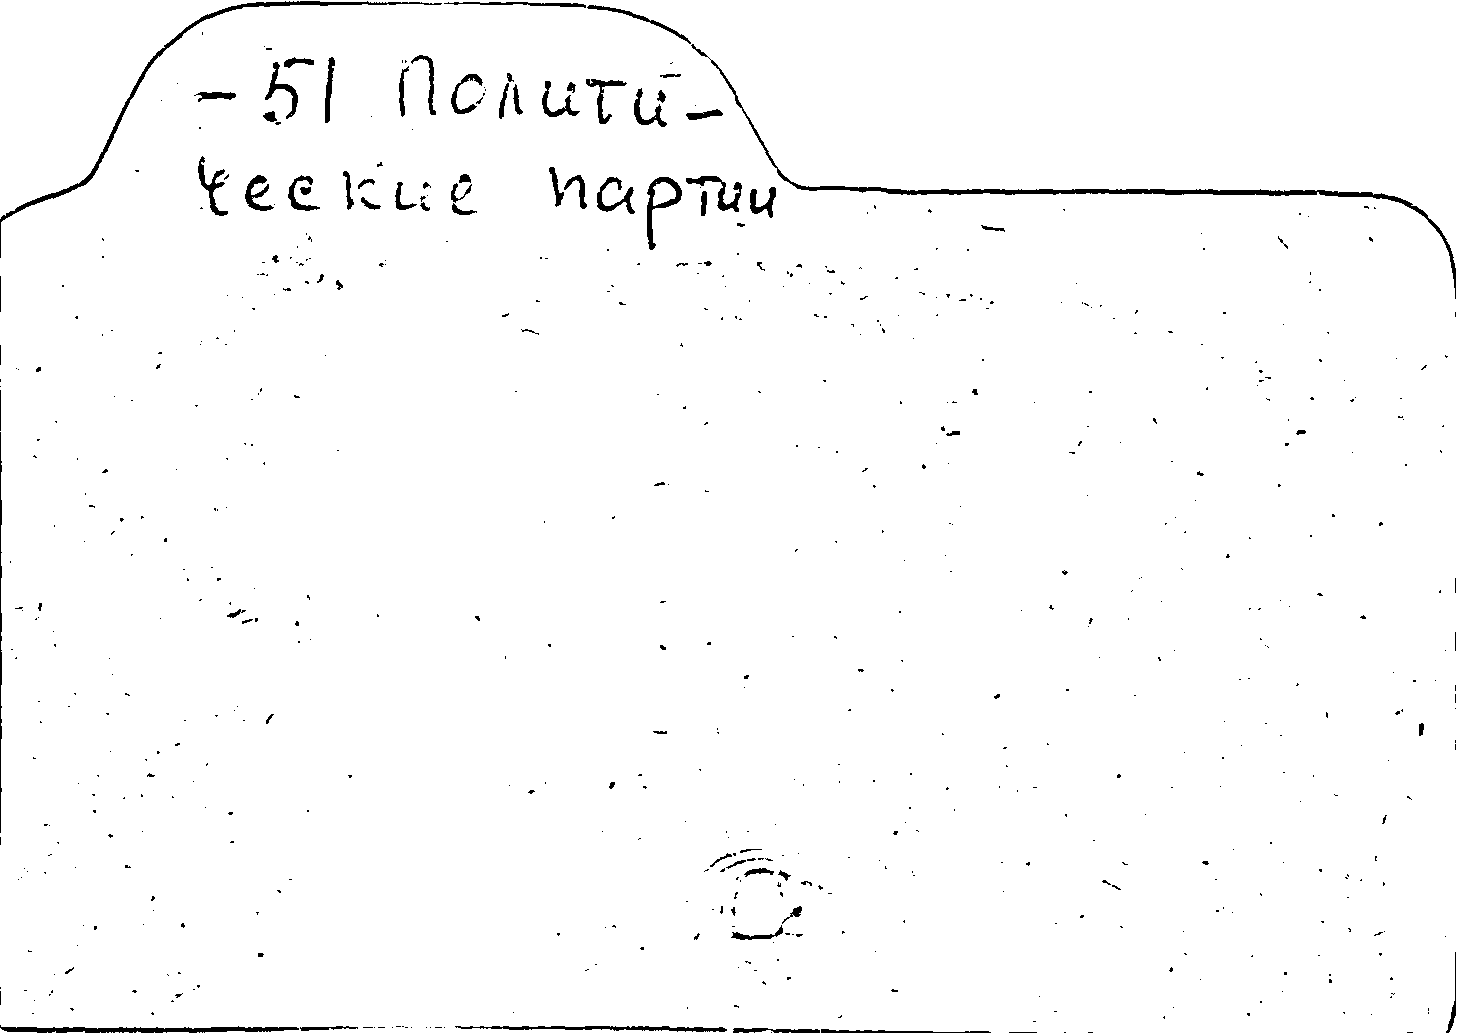 -51 Полити-
ческие партии